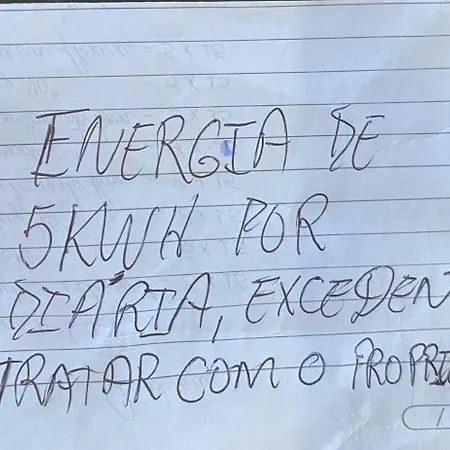 ENERGIA DE
5KWH POR
DIÁRIA, EXCEDEN
TRATAR COM O PROPRI